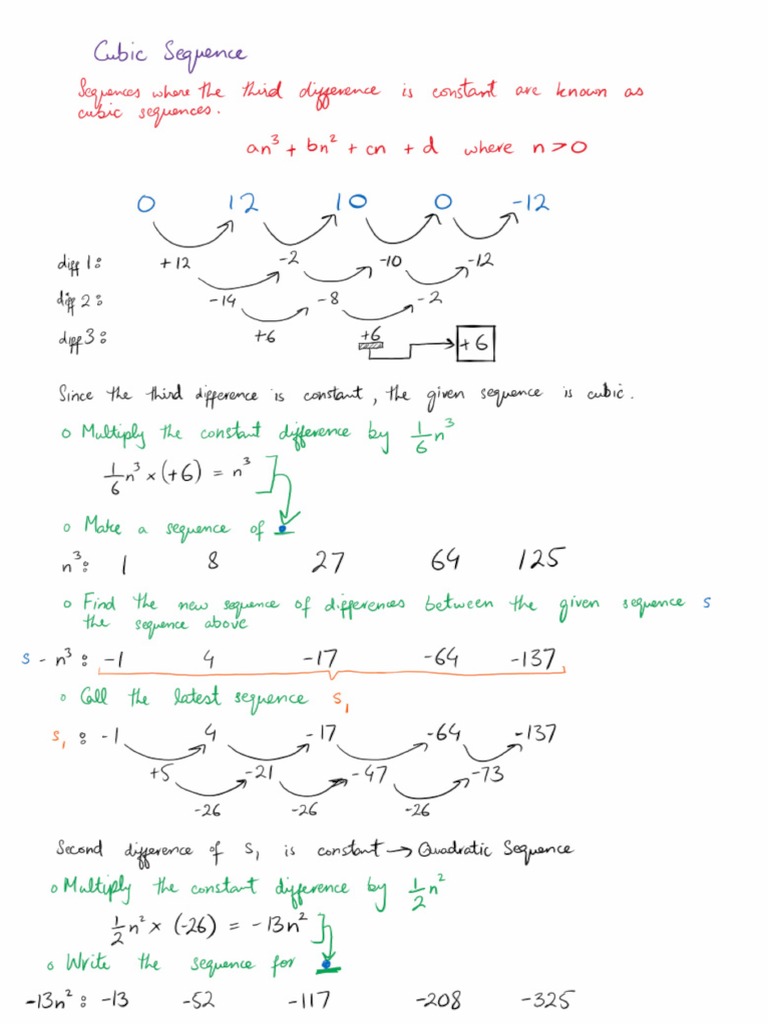 Cubic Sequence
Sequences where the third difference is constant are known as
cubic sequences.
an³ + bn² + cn + d where n > 0
0 12 10 0 -12
diff 1: +12 -2 -10 -12
diff 2: -14 -8 -2
diff 3: +6 +6 +6
Since the third difference is constant, the given sequence is cubic.
o Multiply the constant difference by 1/6 n³
1/6 n³ × (+6) = n³
o Make a sequence of
n³: 1 8 27 64 125
o Find the new sequence of differences between the given sequence s
the sequence above
s - n³: -1 4 -17 -64 -137
o Call the latest sequence s₁
s₁: -1 4 -17 -64 -137
+5 -21 -47 -73
-26 -26 -26
Second difference of s₁ is constant → Quadratic Sequence
o Multiply the constant difference by 1/2 n²
1/2 n² × (-26) = -13n²
o Write the sequence for
-13n²: -13 -52 -117 -208 -325